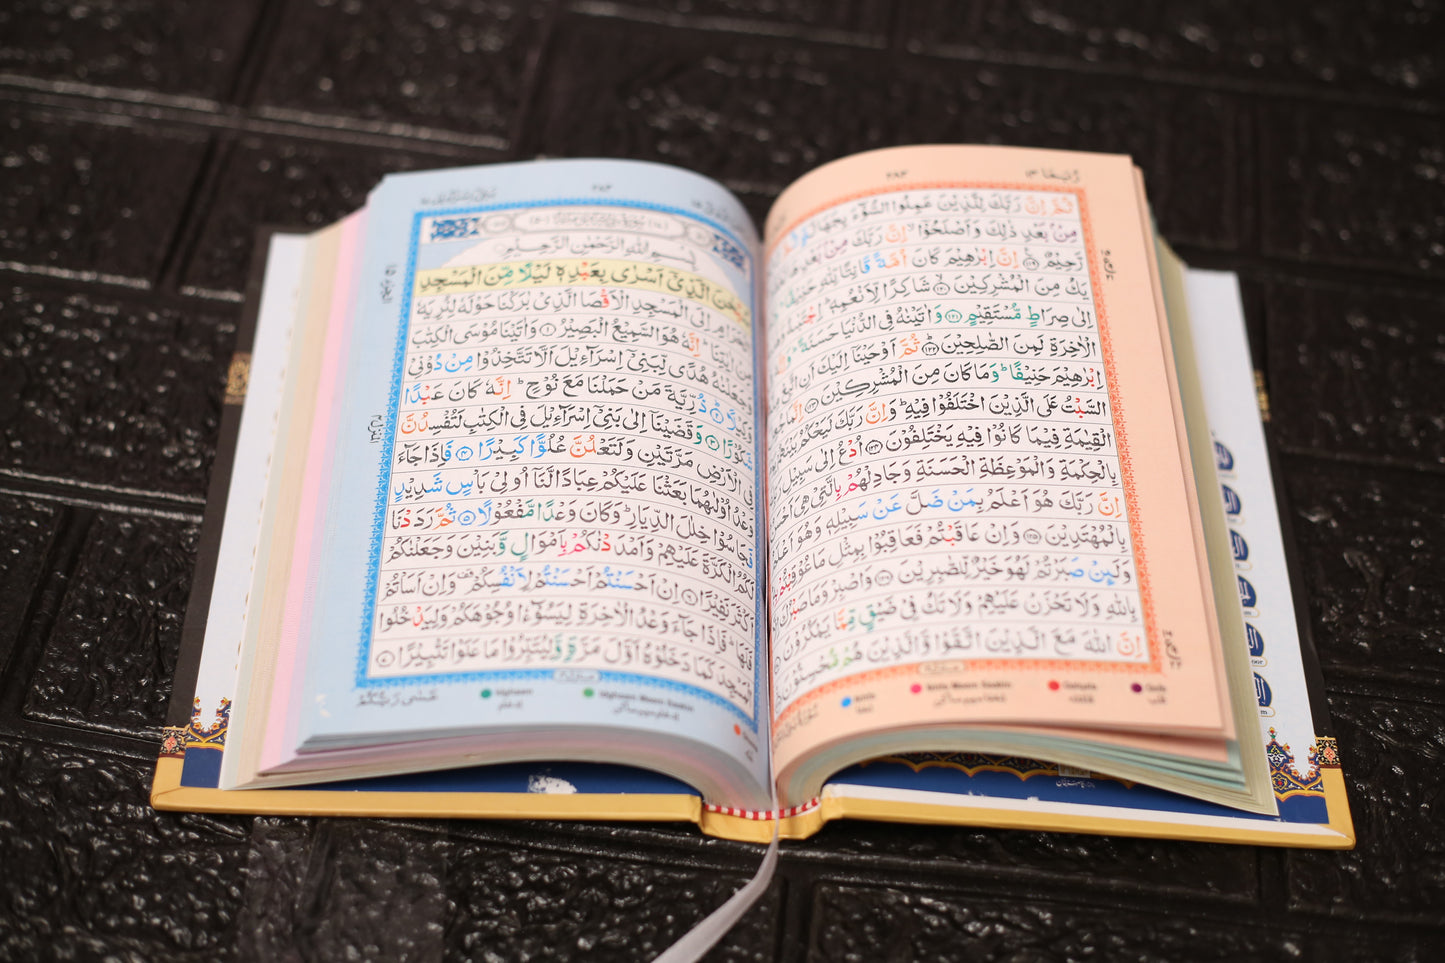 رُبَمَا
٢٨٣
ثُمَّ اِنَّ رَبَّكَ لِلَّذِيْنَ عَمِلُوا السُّوْٓءَ بِجَهَالَةٍ
مِنْۢ بَعْدِ ذٰلِكَ وَاَصْلَحُوْۤا ۙ اِنَّ رَبَّكَ مِنْۢ بَعْدِهَا
رَّحِيْمٌ ۝١١٩ اِنَّ اِبْرٰهِيْمَ كَانَ اُمَّةً قَانِتًا لِّلّٰهِ حَنِيْفًا
يَكُ مِنَ الْمُشْرِكِيْنَ ۝١٢٠ شَاكِرًا لِّاَنْعُمِهٖ ؕ اِجْتَبٰىهُ
اِلٰى صِرَاطٍ مُّسْتَقِيْمٍ ۝١٢١ وَاٰتَيْنٰهُ فِى الدُّنْيَا حَسَنَةً ؕ
الْاٰخِرَةِ لَمِنَ الصّٰلِحِيْنَ ۝١٢٢ ثُمَّ اَوْحَيْنَاۤ اِلَيْكَ اَنِ اتَّبِعْ
اِبْرٰهِيْمَ حَنِيْفًا ؕ وَمَا كَانَ مِنَ الْمُشْرِكِيْنَ ۝١٢٣ اِنَّمَا
السَّبْتُ عَلَى الَّذِيْنَ اخْتَلَفُوْا فِيْهِ ؕ وَاِنَّ رَبَّكَ لَيَحْكُمُ بَيْنَهُمْ
الْقِيٰمَةِ فِيْمَا كَانُوْا فِيْهِ يَخْتَلِفُوْنَ ۝١٢٤ اُدْعُ اِلٰى سَبِيْلِ
بِالْحِكْمَةِ وَالْمَوْعِظَةِ الْحَسَنَةِ وَجَادِلْهُمْ بِالَّتِىْ هِىَ اَحْسَنُ
اِنَّ رَبَّكَ هُوَ اَعْلَمُ بِمَنْ ضَلَّ عَنْ سَبِيْلِهٖ وَهُوَ اَعْلَمُ
بِالْمُهْتَدِيْنَ ۝١٢٥ وَاِنْ عَاقَبْتُمْ فَعَاقِبُوْا بِمِثْلِ مَا عُوْقِبْتُمْ
وَلَئِنْ صَبَرْتُمْ لَهُوَ خَيْرٌ لِّلصّٰبِرِيْنَ ۝١٢٦ وَاصْبِرْ وَمَا صَبْرُكَ
بِاللّٰهِ وَلَا تَحْزَنْ عَلَيْهِمْ وَلَا تَكُ فِىْ ضَيْقٍ مِّمَّا يَمْكُرُوْنَ
اِنَّ اللّٰهَ مَعَ الَّذِيْنَ اتَّقَوْا وَّالَّذِيْنَ هُمْ مُّحْسِنُوْنَ
Qalqala
٢٨٤
بِسْمِ اللّٰهِ الرَّحْمٰنِ الرَّحِيْمِ
سُبْحٰنَ الَّذِىْۤ اَسْرٰى بِعَبْدِهٖ لَيْلًا مِّنَ الْمَسْجِدِ
الْحَرَامِ اِلَى الْمَسْجِدِ الْاَقْصَا الَّذِىْ بٰرَكْنَا حَوْلَهٗ لِنُرِيَهٗ
مِنْ اٰيٰتِنَا ؕ اِنَّهٗ هُوَ السَّمِيْعُ الْبَصِيْرُ ۝١ وَاٰتَيْنَا مُوْسَى الْكِتٰبَ
وَجَعَلْنٰهُ هُدًى لِّبَنِىْۤ اِسْرَآءِيْلَ اَلَّا تَتَّخِذُوْا مِنْ دُوْنِىْ
وَكِيْلًا ۝٢ ذُرِّيَّةَ مَنْ حَمَلْنَا مَعَ نُوْحٍ ؕ اِنَّهٗ كَانَ عَبْدًا
شَكُوْرًا ۝٣ وَقَضَيْنَاۤ اِلٰى بَنِىْۤ اِسْرَآءِيْلَ فِى الْكِتٰبِ لَتُفْسِدُنَّ
فِى الْاَرْضِ مَرَّتَيْنِ وَلَتَعْلُنَّ عُلُوًّا كَبِيْرًا ۝٤ فَاِذَا جَآءَ
وَعْدُ اُوْلٰىهُمَا بَعَثْنَا عَلَيْكُمْ عِبَادًا لَّنَاۤ اُولِىْ بَاْسٍ شَدِيْدٍ
فَجَاسُوْا خِلٰلَ الدِّيَارِ ؕ وَكَانَ وَعْدًا مَّفْعُوْلًا ۝٥ ثُمَّ رَدَدْنَا
لَكُمُ الْكَرَّةَ عَلَيْهِمْ وَاَمْدَدْنٰكُمْ بِاَمْوَالٍ وَّبَنِيْنَ وَجَعَلْنٰكُمْ
اَكْثَرَ نَفِيْرًا ۝٦ اِنْ اَحْسَنْتُمْ اَحْسَنْتُمْ لِاَنْفُسِكُمْ وَاِنْ اَسَاْتُمْ
فَلَهَا ؕ فَاِذَا جَآءَ وَعْدُ الْاٰخِرَةِ لِيَسُوْٓءٗا وُجُوْهَكُمْ وَلِيَدْخُلُوا
الْمَسْجِدَ كَمَا دَخَلُوْهُ اَوَّلَ مَرَّةٍ وَّلِيُتَبِّرُوْا مَا عَلَوْا تَتْبِيْرًا ۝٧
عَسٰى رَبُّكُمْ